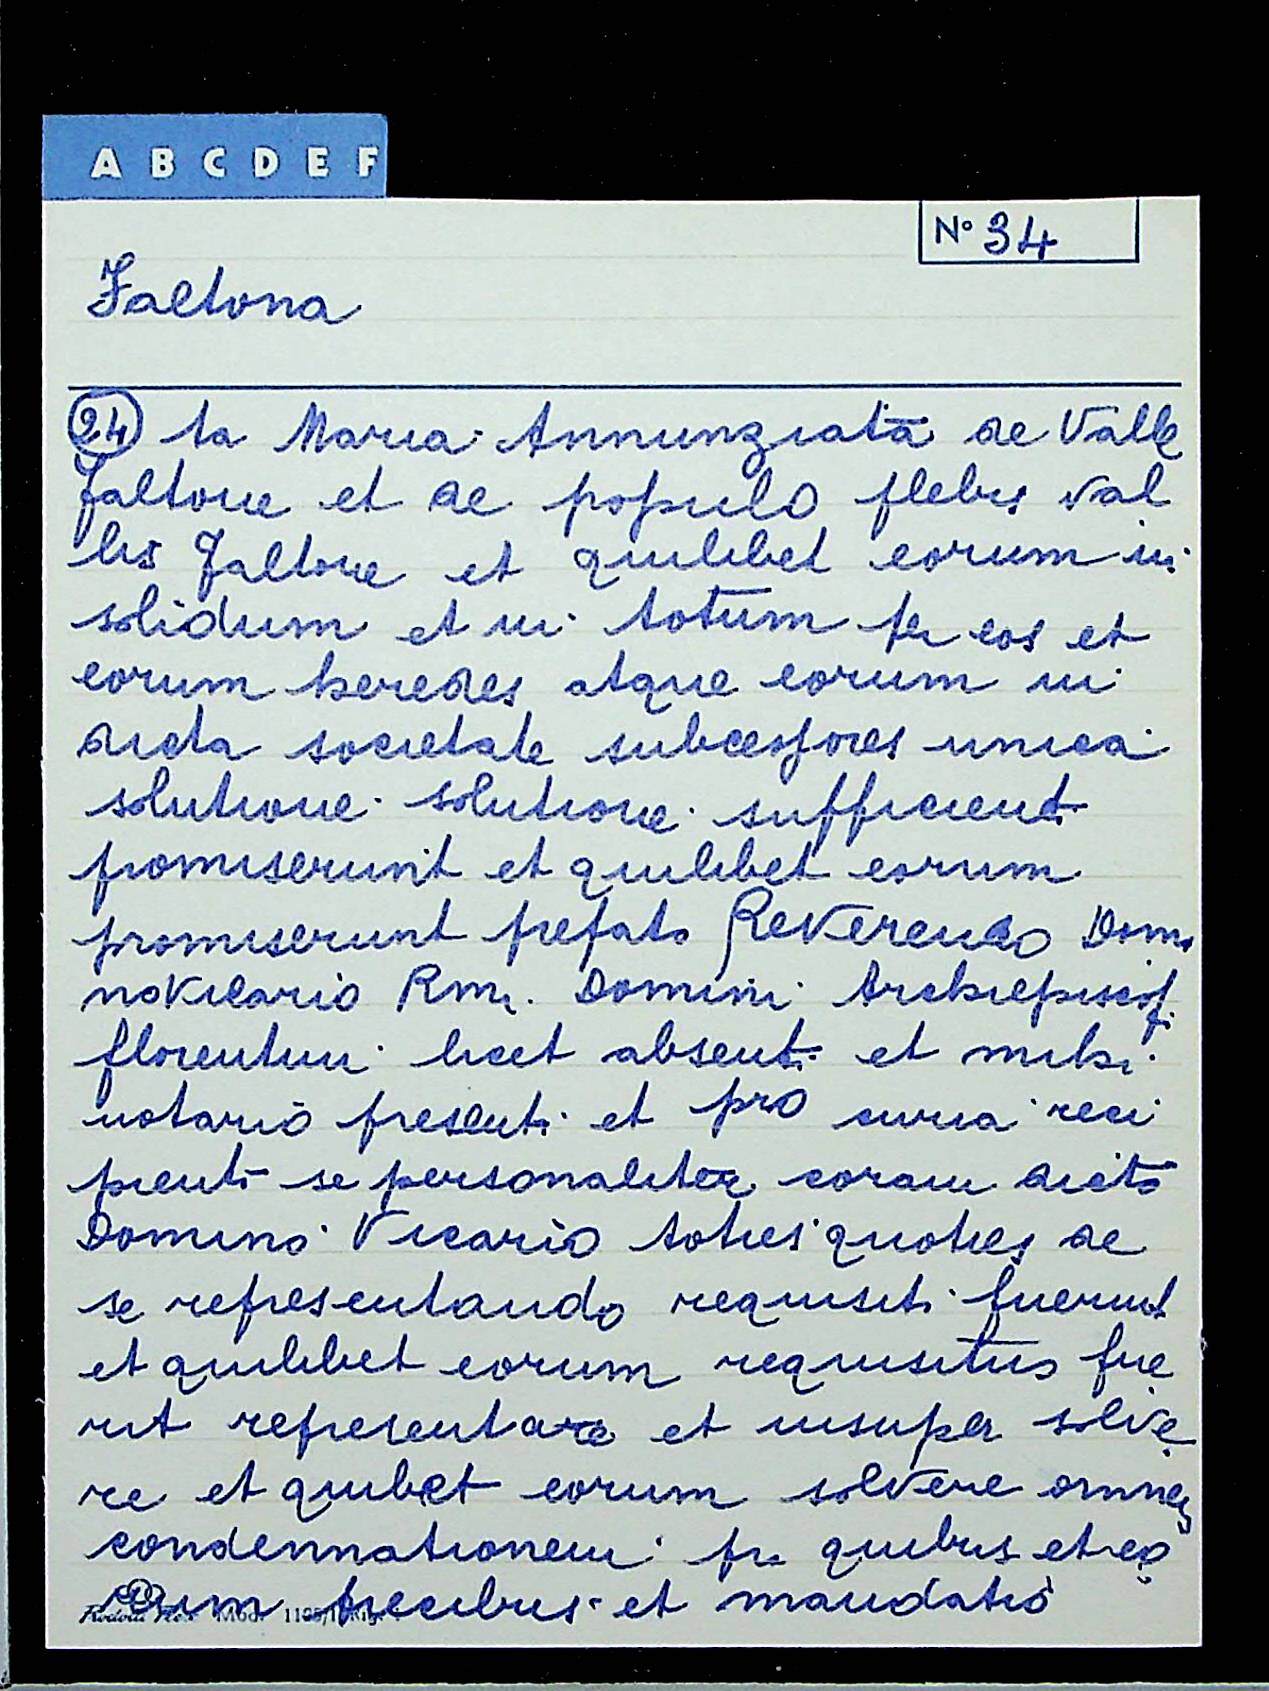 A B C D E F
N° 34
Faltona
24 ta Maria Annunziata de Valle
Faltone et de populo plebis val
lis Faltone et quilibet eorum in
solidum et in totum per eos et
eorum heredes atque eorum in
dicta societate subcessores unica
solutione solutione sufficienti
promiserunt et quilibet eorum
promiserunt prefato Reverendo Domi
no Vicario Rmi. Domini Archiepiscopi
florentini licet absenti et mihi
notario presenti et pro curia reci
pienti se personaliter coram dicto
Domino Vicario toties quoties de
se representando requisiti fuerint
et quilibet eorum requisitus fue
rit representare et insuper solve
re et quibet eorum solvere omnes
condennationem pr quibus et eo
rum precibus et mandatis